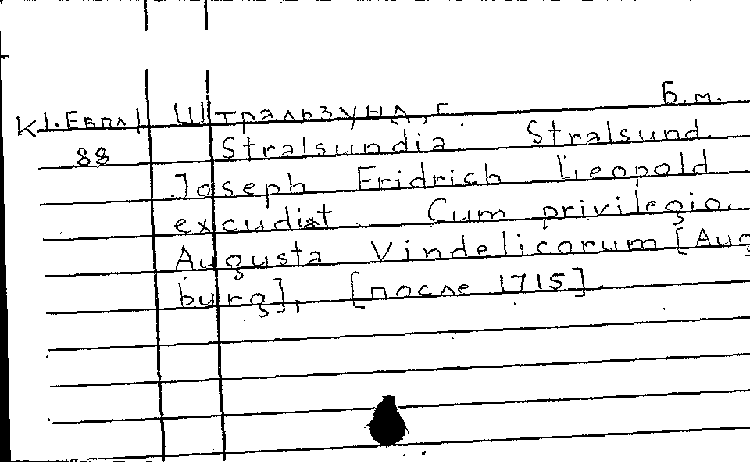 К 1. Евпл 1 Штральзунд, г. Б.м.
88 Stralsundia Stralsund.
Joseph Fridrich Leopold
excudist Cum privilegio.
Augusta Vindelicorum [Aug
burg], [после 1715]